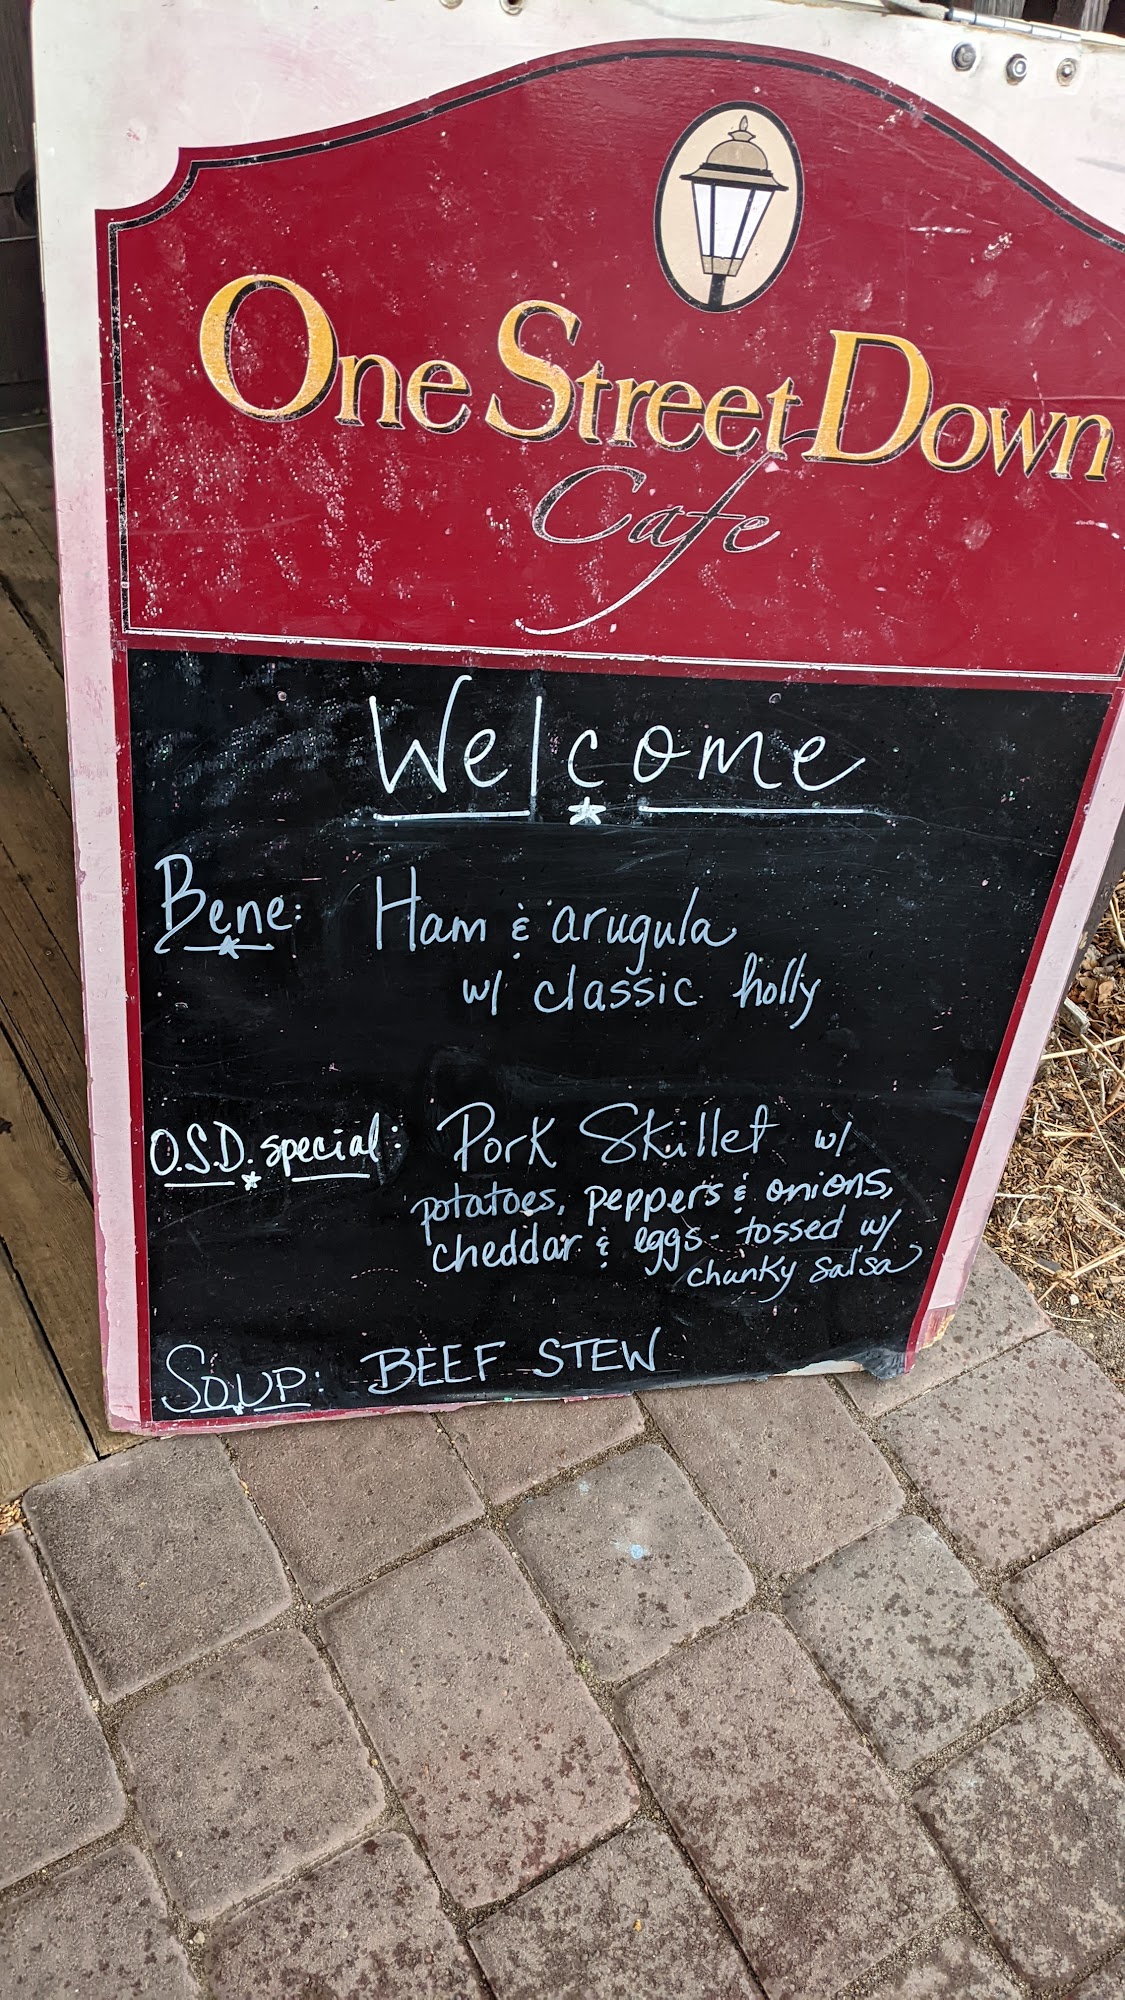 One Street Down
Cafe
Welcome
Bene: Ham & arugula
w/ classic holly
O.S.D. special: Pork Skillet w/
potatoes, peppers & onions,
cheddar & eggs - tossed w/
chunky salsa
Soup: BEEF STEW